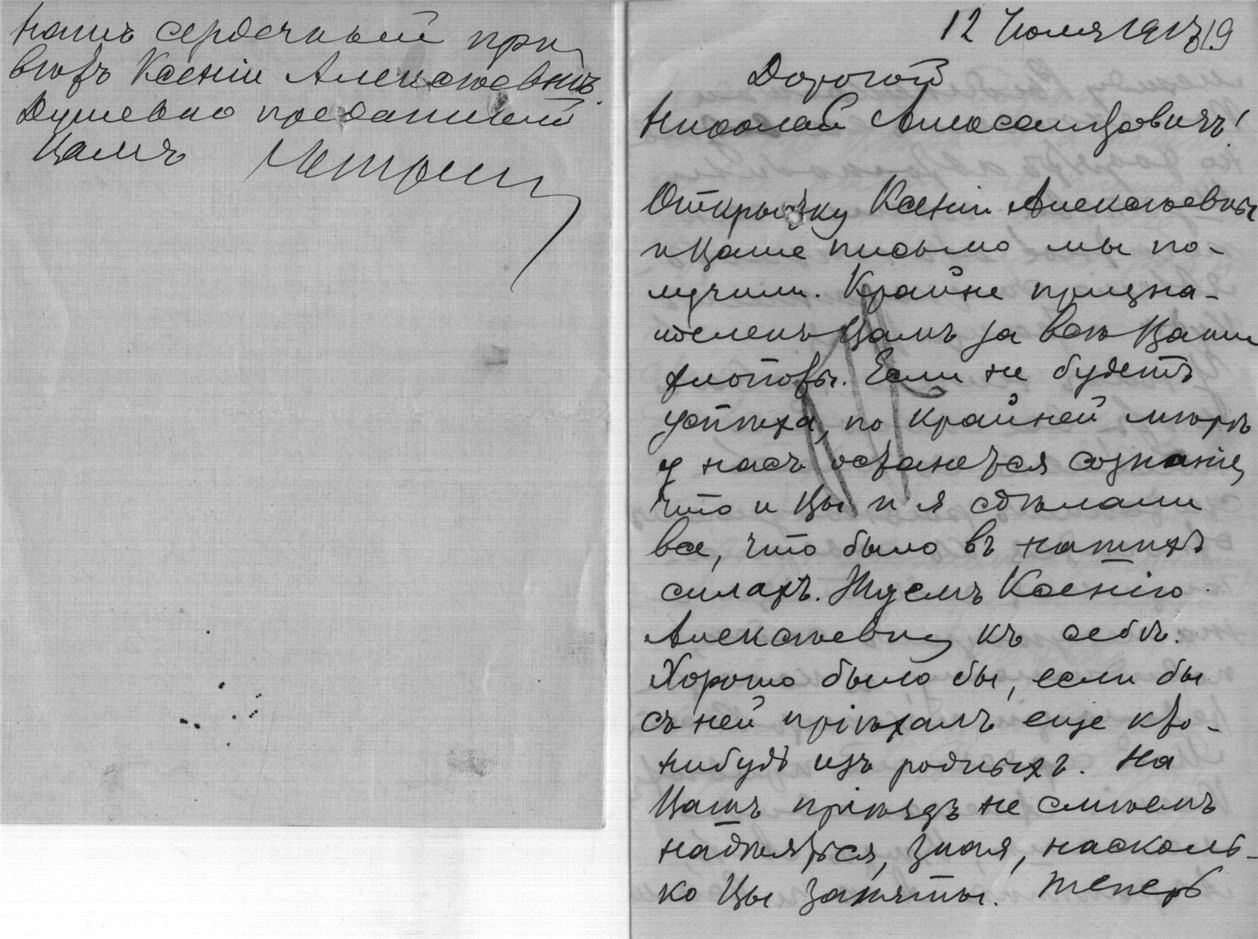 нашъ сердечный при
вѣтъ Ксеніи Алексѣевнѣ.
Душевно преданный
Вамъ
12 Іюля 1913 19
Дорогой
Николай Александровичъ!
Открытку Ксеніи Алексѣевны
и Ваше письмо мы по-
лучили. Крайне призна-
теленъ Вамъ за всѣ Ваши
хлопоты. Если не будетъ
успѣха, по крайней мѣрѣ
у насъ останется сознаніе,
что и Вы и я сдѣлали
все, что было въ нашихъ
силахъ. Ждемъ Ксенію
Алексѣевну къ себѣ.
Хорошо было бы, если бы
съ ней пріѣхалъ еще кто-
нибудь изъ родныхъ. На
Вашъ пріѣздъ не смѣемъ
надѣяться, зная, насколь-
ко Вы заняты. Теперь